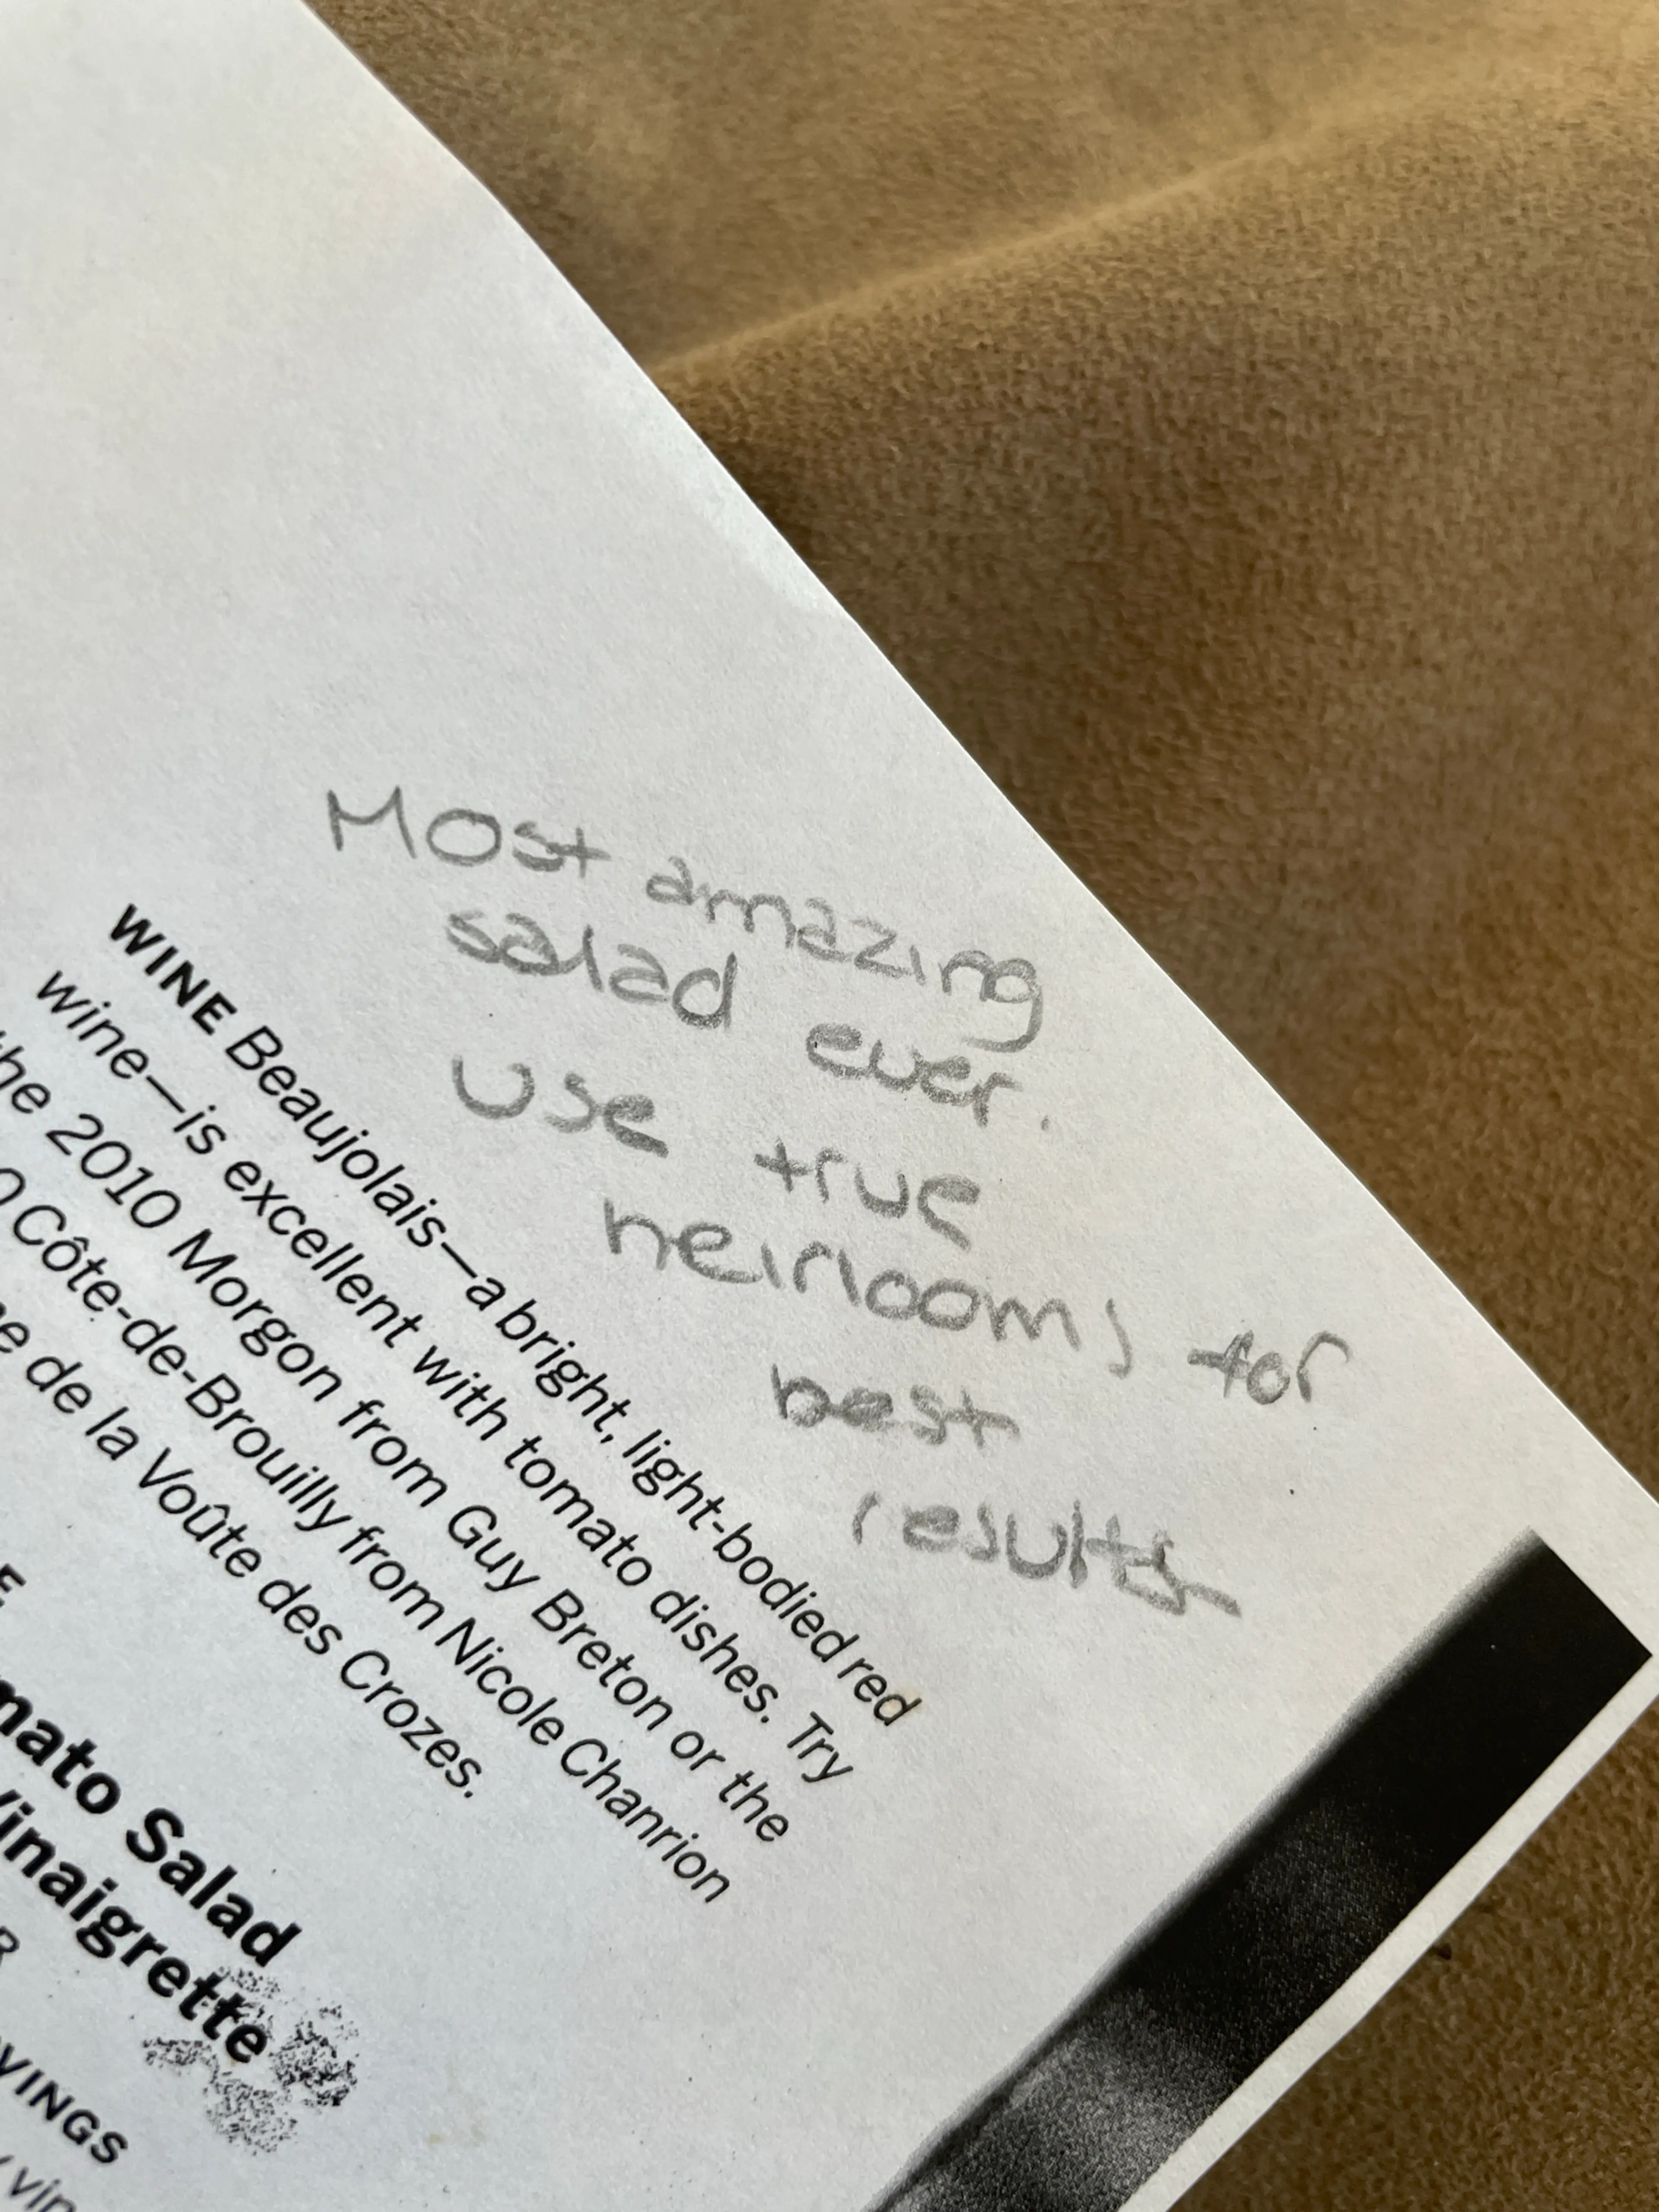 Most amazing
salad ever.
Use true
heirlooms for
best
results
WINE Beaujolais—a bright, light-bodied red
wine—is excellent with tomato dishes. Try
the 2010 Morgon from Guy Breton or the
Côte-de-Brouilly from Nicole Chanrion
de la Voûte des Crozes.
Salad
Vinaigrette